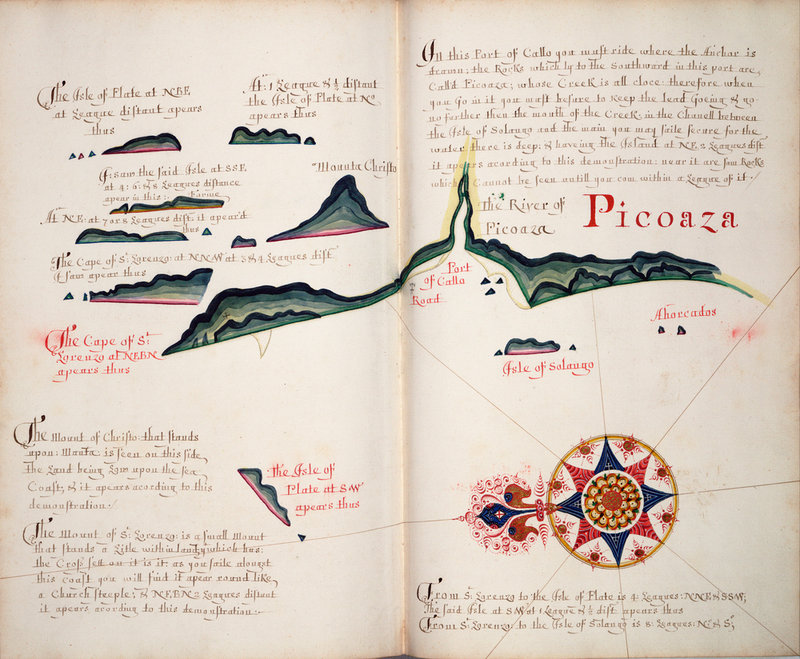 The Isle of Plate at NBE
at League distant apears
thus
At 1 League & ½ distant
the Isle of Plate at No
apears thus
I saw the said Isle at SSE
at 4: 6: & 8 Leagues distance
apear in this: forme
Mounta Christo
At NE: at 7 or 8 Leagues dist: it apear'd
thus
The Cape of St Lorenzo: at NNW at 3 & 4 Leagues dist.
I saw apear thus
The Cape of St
Lorenzo at NEBN
apears thus
The Mount of Christo that stands
upon: Manta: is seen on this side
The Land being Low upon the sea
Coast; & it apears acording to this
demonstration:
The Isle of
Plate at SW
apears thus
The Mount of St Lorenzo: is a small Mount
that stands a Litle within land; which has:
the Cross sett on it is it: as you saile alongst
this Coast you will find it apear round like
a Church steeple; & NEBN 2 Leagues distant
it apears acording to this demonstration:
In this Port of Callo you must ride where the Anchor is
drawn; the Rocks which ly to the Southward in this port are
Calld Picoaza; whose Creek is all close: therefore when
you Go in it you must besure to keep the lead Goeing & go
no farther then the mouth of the Creek: in the Chanell between
the Isle of Solango and the main you may saile secure for the
water there is deep: & haveing the Island at NE 2 Leagues dist
it apears acording to this demonstration: near it are som Rocks
which Cannot be seen untill you com within a League of it
The River of
Picoaza
Picoaza
Port
of Callo
Road
Ahorcados
Isle of Solango
From St Lorenzo to the Isle of Plate is 4: Leagues: NNE & SSW;
The said Isle at SW at 1 League & ½ dist apears thus
From St Lorenzo: to the Isle of Solango is 8: Leagues: No & So;